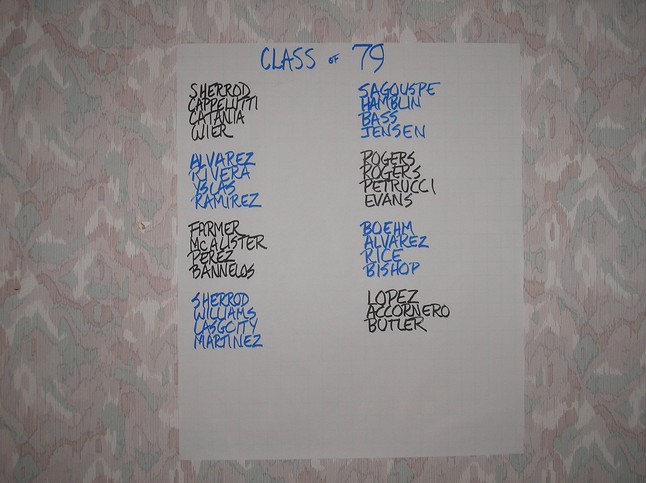 CLASS OF 79
SHERROD
CAPPELUTTI
CATANIA
WIER
ALVAREZ
RIVERA
YSLAS
RAMIREZ
FARMER
McALISTER
PEREZ
BANNELOS
SHERROD
WILLIAMS
LASGCITY
MARTINEZ
SAGOUSPE
HAMBLIN
BASS
JENSEN
ROGERS
ROGERS
PETRUCCI
EVANS
BOEHM
ALVAREZ
RICE
BISHOP
LOPEZ
ACCORNERO
BUTLER